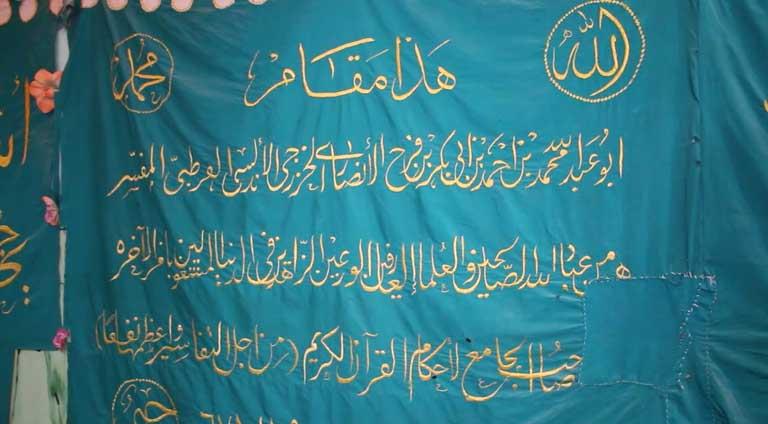 الله
محمد
هذا مقام
ابو عبد الله محمد بن احمد بن ابي بكر بن فرح الأنصاري الخزرجي الأندلسي القرطبي المفسر
من عباد الله الصالحين والعلماء العارفين الورعين الزاهدين في الدنيا المشغولين بأمر الآخره
صاحب الجامع لأحكام القرآن الكريم (من اجل التفاسير واعظمها نفعا)